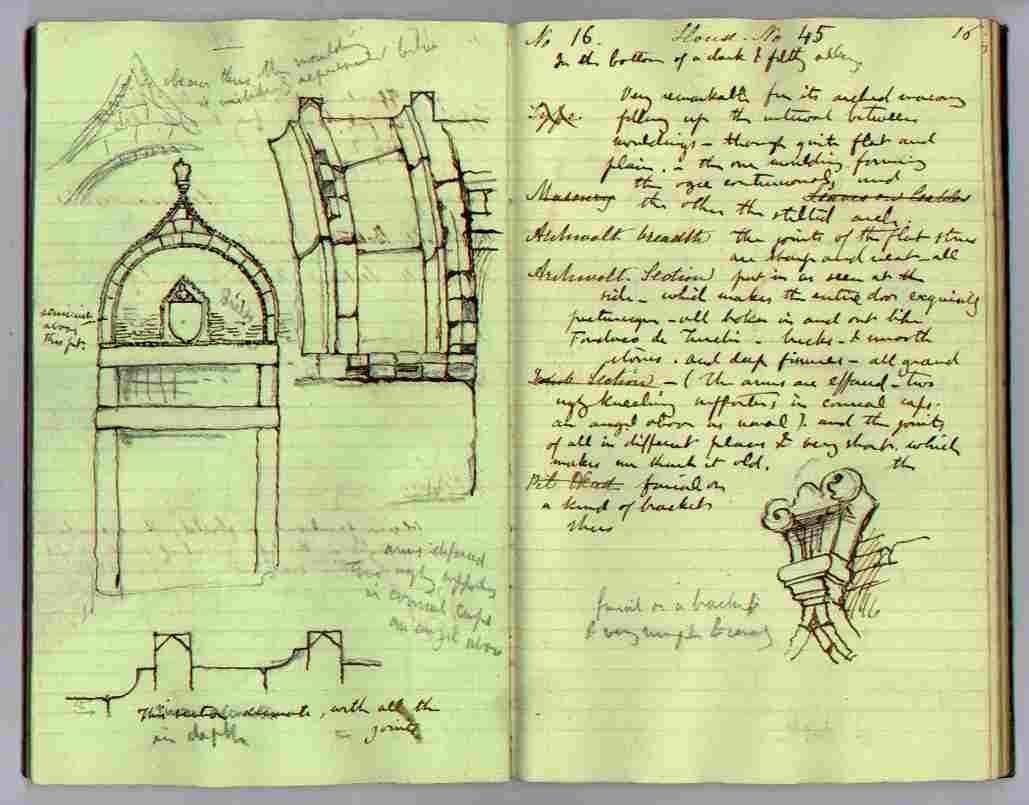 observe thus the moulding
is mistakenly represented below
semicircle
above
this pt.
arms defaced
Two ugly supporters
in conical caps
an angel above
This section accurate, with all the
in depth = joints
No 16. House. No 45 16
In the bottom of a dark & filthy alley
Very remarkable for its arched masonry
Type. filling up the interval between
mouldings - though quite flat and
plain, - the one moulding forming
the ogee continuously, and
Masonry the other the stilted arch. Leaves on Cables
Archivolt breadth the joints of the flat stones
are sharp and neat - all
Archivolt. Section put in as seen at the
side - which makes the entire door exquisitely
picturesque - all broken in and out like
Fondaco de Turchi - bricks - & smooth
stones. and deep fissures - all grand
Jamb Section - (The arms are effaced - two
ugly kneeling supporters in conical caps.
an angel above as usual). and the joints
of all in different places & very sharp. which
makes me think it old. the
finial on
a kind of bracket
thus
finial on a bracket
& very rough